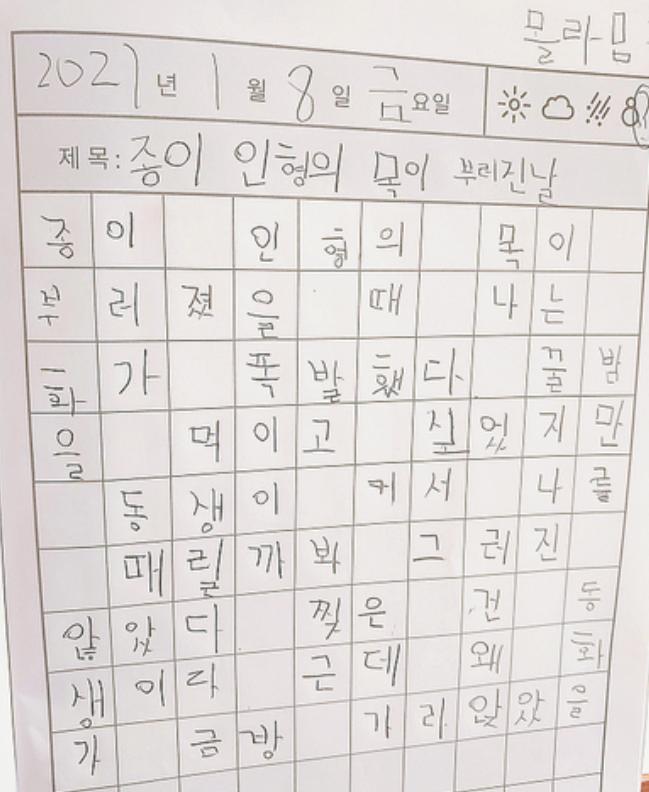 2021년 1월 8일 금요일
제목: 종이 인형의 목이 부러진날
종이 인형의 목이
부러졌을 때 나는
화가 폭발했다 꿀밤
을 먹이고 싶었지만
동생이 커서 나를
때릴까봐 그러진
않았다 찢은 건 동
생이라 근데 왜 화
가 금방 가라앉았을